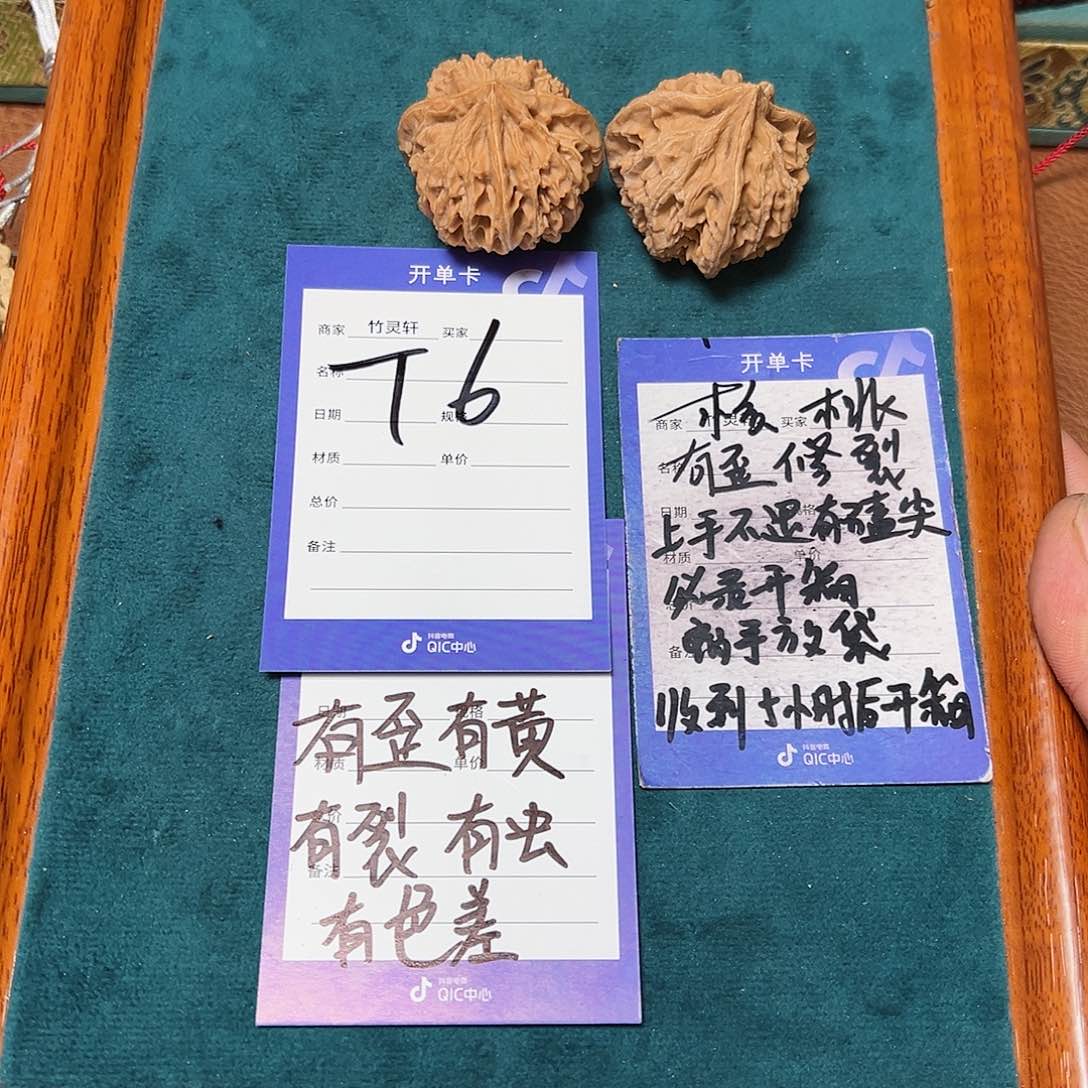 开单卡
商家 竹灵轩 买家
名称
T6
日期 规格
材质 单价
总价
备注
抖音电商
QIC中心
有歪有黄
材质 单价
有裂 有虫
备注
有色差
抖音电商
QIC中心
开单卡
核 桃
商家 买家
有歪 修 裂
日期
上手不退有磕尖
材质 单价
必录开箱
备
收到 小时后开箱
抖音电商
QIC中心